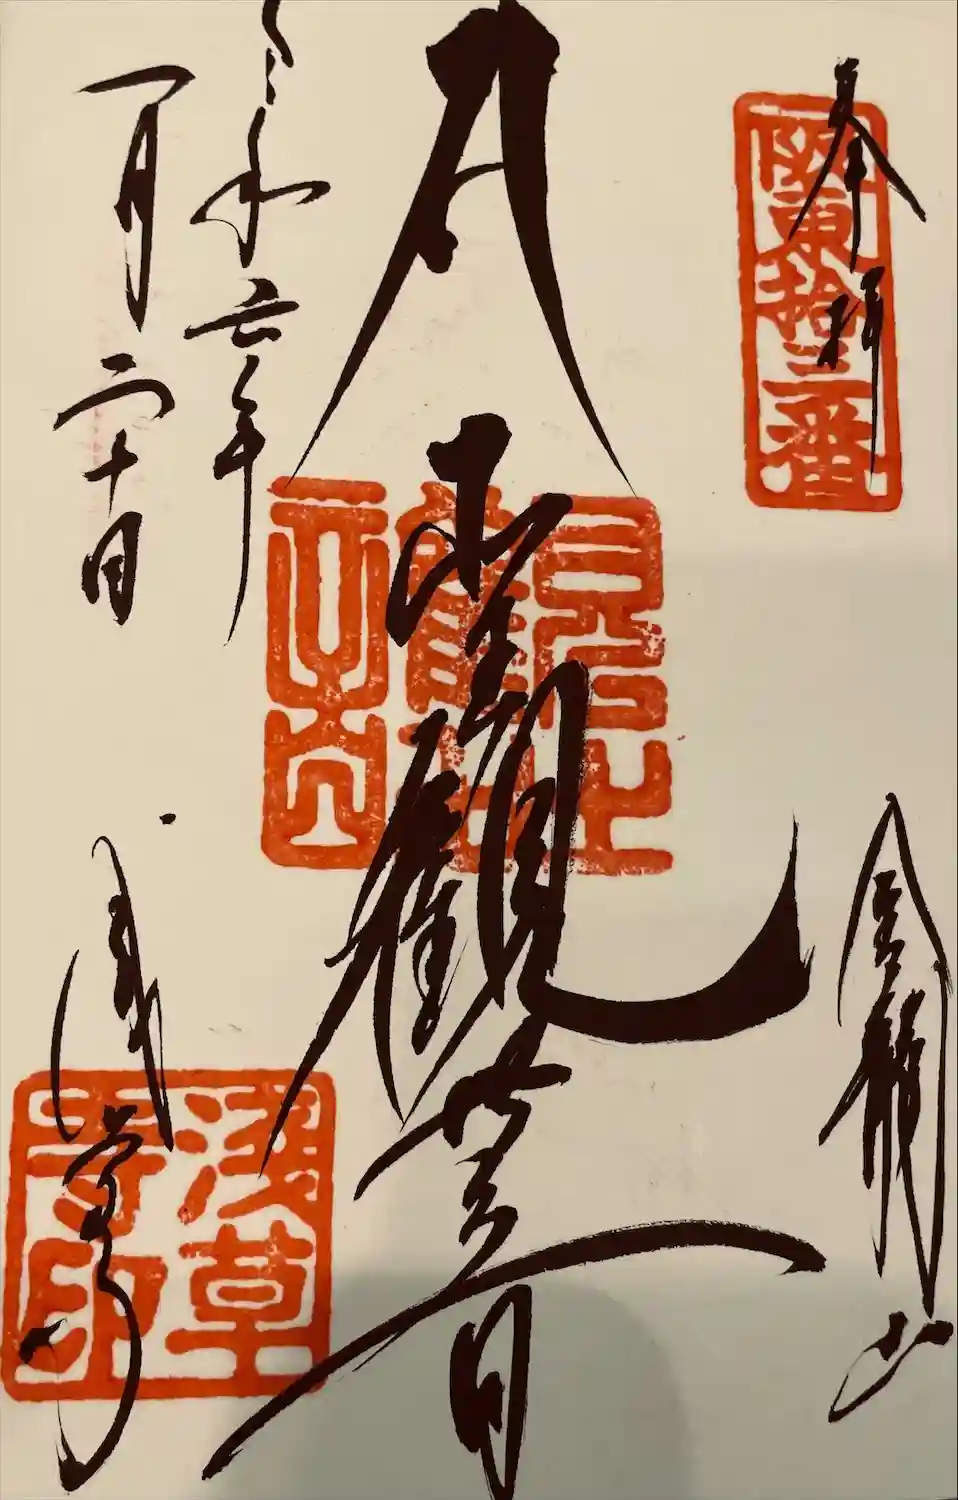 奉拝
坂東拾三番
金龍山
聖観世音
令和六年
一月二十日
浅草寺
浅草
寺印